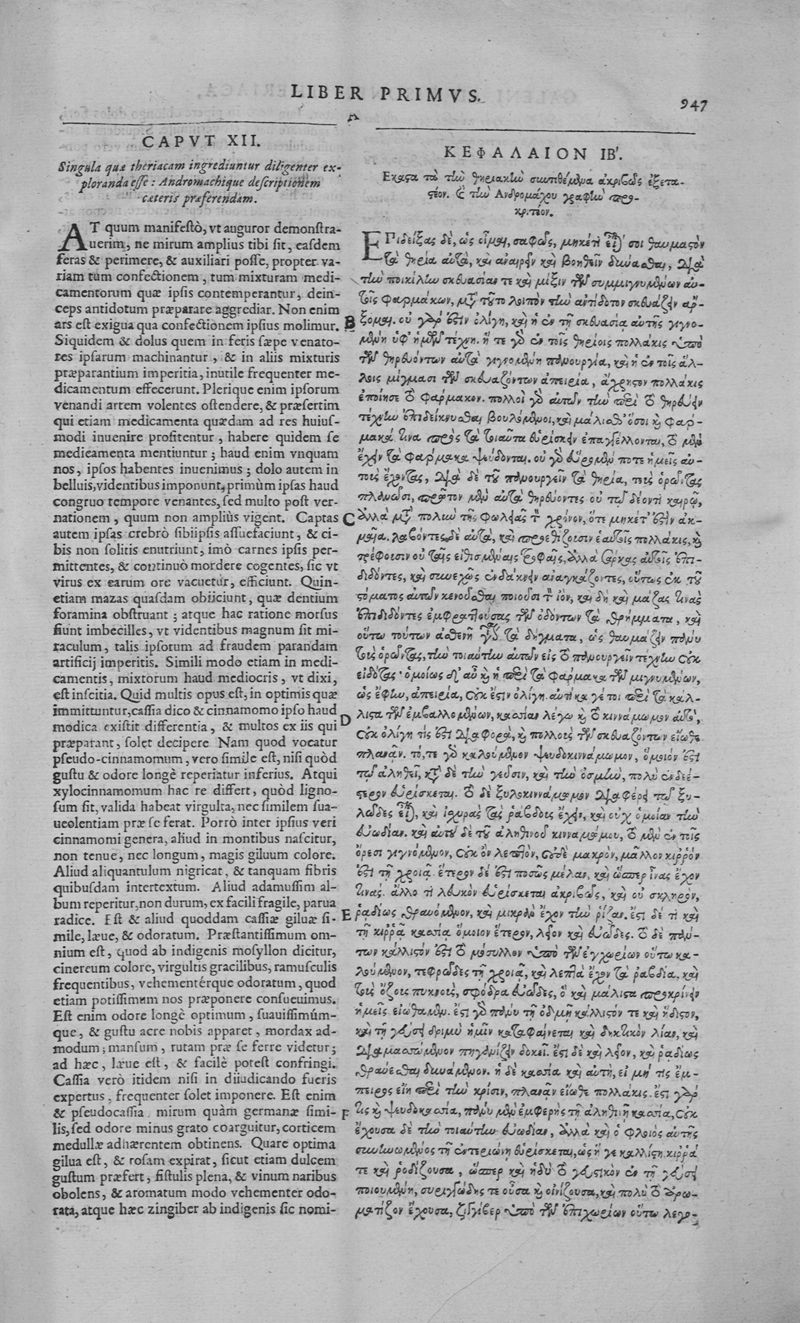 LIBER PRIMVS.
947
CAPVT XII.
Singula quæ theriacam ingrediuntur diligenter ex-
ploranda eſſe : Andromachique deſcriptionem
cæteris præferendam.
AT quum manifeſtò, vt auguror demonſtra-
uerim, ne mirum amplius tibi ſit, eaſdem
feras & perimere, & auxiliari poſſe, propter va-
riam tum confectionem, tum mixturam medi-
camentorum quæ ipſis contemperantur, dein-
ceps antidotum præparare aggrediar. Non enim
ars eſt exigua qua confectionem ipſius molimur.
Siquidem & dolus quem in feris ſæpe venato-
res ipſarum machinantur, & in aliis mixturis
præparantium imperitia, inutile frequenter me-
dicamentum effecerunt. Plerique enim ipſorum
venandi artem volentes oſtendere, & præſertim
qui etiam medicamenta quædam ad res huiuſ-
modi inuenire profitentur, habere quidem ſe
medicamenta mentiuntur ; haud enim vnquam
nos, ipſos habentes inuenimus ; dolo autem in
belluis, videntibus imponunt, primùm ipſas haud
congruo tempore venantes, ſed multo poſt ver-
nationem, quum non ampliùs vigent. Captas
autem ipſas crebrò ſibiipſis aſſuefaciunt, & ci-
bis non ſolitis enutriunt, imò carnes ipſis per-
mittentes, & continuò mordere cogentes, ſic vt
virus ex earum ore vacuetur, efficiunt. Quin-
etiam mazas quaſdam obiiciunt, quæ dentium
foramina obſtruant ; atque hac ratione morſus
fiunt imbecilles, vt videntibus magnum ſit mi-
raculum, talis ipſorum ad fraudem parandam
artificij imperitis. Simili modo etiam in medi-
camentis, mixtorum haud mediocris, vt dixi,
eſt inſcitia. Quid multis opus eſt, in optimis quæ
immittuntur, caſſia dico & cinnamomo ipſo haud
modica exiſtit differentia, & multos ex iis qui
præparant, ſolet decipere Nam quod vocatur
pſeudo-cinnamomum, vero ſimile eſt, niſi quòd
guſtu & odore longè reperiatur inferius. Atqui
xylocinnamomum hac re differt, quòd ligno-
ſum ſit, valida habeat virgulta, nec ſimilem ſua-
ueolentiam præ ſe ferat. Porrò inter ipſius veri
cinnamomi genera, aliud in montibus naſcitur,
non tenue, nec longum, magis giluum colore.
Aliud aliquantulum nigricat, & tanquam fibris
quibuſdam intertextum. Aliud adamuſſim al-
bum reperitur, non durum, ex facili fragile, parua
radice. Eſt & aliud quoddam caſſiæ giluæ ſi-
mile, læue, & odoratum. Præſtantiſſimum om-
nium eſt, quod ab indigenis moſyllon dicitur,
cinereum colore, virgultis gracilibus, ramuſculis
frequentibus, vehementérque odoratum, quod
etiam potiſſimum nos præponere conſueuimus.
Eſt enim odore longè optimum, ſuauiſſimúm-
que, & guſtu acre nobis apparet, mordax ad-
modum ; manſum, rutam præ ſe ferre videtur ;
ad hæc, læue eſt, & facilè poteſt confringi.
Caſſia verò itidem niſi in diiudicando fueris
expertus, frequenter ſolet imponere. Eſt enim
& pſeudocaſſia mirum quàm germanæ ſimi-
lis, ſed odore minus grato coarguitur, corticem
medullæ adhærentem obtinens. Quare optima
gilua eſt, & roſam expirat, ſicut etiam dulcem
guſtum præfert, fiſtulis plena, & vinum naribus
obolens, & aromatum modo vehementer odo-
rata, atque hæc zingiber ab indigenis ſic nomi-
B
C
D
E
F
ΚΕΦΑΛΑΙΟΝ ΙΒ'.
Ἕκαστα τὰ τὴν θηριακὴν συντιθέμενα ἀκριβῶς ἐξετα-
στέον. καὶ τὴν Ἀνδρομάχου γραφὴν προ-
κριτέον.
ΕΠιδείξας δὲ, ὡς οἶμαι, σαφῶς, μηκέτι εἶναί σοι θαυμαστὸν
τὰ θηρία αὐτὰ, καὶ ἀναιρεῖν καὶ βοηθεῖν δύνασθαι, διὰ
τὴν ποικίλην σκευασίαν τε καὶ μίξιν τῶν συμμιγνυμένων αὐ-
τοῖς φαρμάκων, μετὰ τοῦτο λοιπὸν τὴν ἀντίδοτον σκευάζειν ἄρ-
ξομαι. οὐ γάρ ἐστιν ὀλίγη, καὶ ἡ ἐν τῇ σκευασίᾳ αὐτῆς γιγνο-
μένη ὑφ' ἡμῶν τέχνη. ἥ τε γὰρ ἐν τοῖς θηρίοις πολλάκις ὑπὸ
τῶν θηρευόντων αὐτὰ γιγνομένη πανουργία, καὶ ἡ ἐν τοῖς ἄλ-
λοις μίγμασι τῶν σκευαζόντων ἀπειρία, ἄχρηστον πολλάκις
ἐποίησε τὸ φάρμακον. πολλοὶ γὰρ αὐτῶν τὴν περὶ τὸ θηρεύειν
τέχνην ἐπιδείκνυσθαι βουλόμενοι, καὶ μάλισθ' ὅσοι καὶ φάρ-
μακά τινα πρὸς τὰ τοιαῦτα εὑρίσκειν ἐπαγγέλλονται, τὸ μὲν
ἔχειν τὰ φάρμακα ψεύδονται. οὐ γὰρ εὕρομέν ποτε ἡμεῖς αὐ-
τοὺς ἔχοντας, διὰ δὲ τοῦ πανουργεῖν τὰ θηρία, τοὺς ὁρῶντας
πλανῶσι, πρῶτον μὲν αὐτὰ θηρεύοντες οὐ τῷ δέοντι καιρῷ,
ἀλλὰ μετὰ πολὺν τῆς φωλείας τὸν χρόνον, ὅτε μηκέτ' ἐστὶν ἀκ-
μαῖα. λαβόντες δὲ αὐτὰ, καὶ προσεθίζουσιν ἑαυτοῖς πολλάκις, καὶ
τρέφουσιν οὐ ταῖς εἰθισμέναις τροφαῖς, ἀλλὰ σάρκας αὐτοῖς ἐπι-
διδόντες, καὶ συνεχῶς ἐνδάκνειν ἀναγκάζοντες, οὕτως ἐκ τοῦ
στόματος αὐτῶν κενοῦσθαι ποιοῦσι τὸν ἰὸν, καὶ δὴ καὶ μάζας τινὰς
ἐπιδιδόντες ἐμφραττούσας τῶν ὀδόντων τὰ τρήματα, καὶ
οὕτω τούτων ἀσθενῆ γίνεται τὰ δήγματα, ὡς θαυμάζειν πάνυ
τοὺς ὁρῶντας, τὴν τοιαύτην αὐτῶν εἰς τὸ πανουργεῖν τέχνην οὐκ
εἰδότας· ὁμοίως δ' αὖ καὶ ἡ περὶ τὰ φάρμακα τῶν μιγνυμένων,
ὡς ἔφην, ἀπειρία, οὐκ ἔστιν ὀλίγη. αὐτίκα γέ τοι περὶ τὰ κάλ-
λιστα τῶν ἐμβαλλομένων, κασίαν λέγω καὶ τὸ κιννάμωμον αὐτὸ,
οὐκ ὀλίγη τίς ἐστι διαφορὰ, καὶ πολλοὺς τῶν σκευαζόντων εἴωθε
πλανᾶν. τό, τε γὰρ καλούμενον ψευδοκιννάμωμον, ὅμοιόν ἐστι
τῷ ἀληθεῖ, κατὰ δὲ τὴν γεῦσιν, καὶ τὴν ὀσμὴν, πολὺ ἐνδεέ-
στερον εὑρίσκεται. τὸ δὲ ξυλοκιννάμωμον διαφέρει τῷ ξυ-
λῶδες εἶναι, καὶ ἰσχυρὰς τὰς ῥάβδους ἔχειν, καὶ οὐχ ὁμοίαν τὴν
εὐωδίαν. καὶ αὐτοῦ δὲ τοῦ ἀληθινοῦ κινναμώμου, τὸ μὲν ἐν τοῖς
ὄρεσι γιγνόμενον, οὐκ ὂν λεπτὸν, οὐδὲ μακρὸν, μᾶλλον κιρρόν
ἐστι τῇ χροιᾷ. ἕτερον δέ ἐστι ποσῶς μέλαν, καὶ ὥσπερ ἶνας ἔχον
τινάς. ἄλλο τι λευκὸν εὑρίσκεται ἀκριβῶς, καὶ οὐ σκληρὸν,
ῥᾳδίως θραυόμενον, καὶ μικρὰν ἔχον τὴν ῥίζαν. ἔστι δέ τι καὶ
τῇ κιρρᾷ κασίᾳ ὅμοιον ἕτερον, λεῖον καὶ εὐῶδες. τὸ δὲ πάν-
των κάλλιστόν ἐστι τὸ μόσυλλον ὑπὸ τῶν ἐγχωρίων οὕτω κα-
λούμενον, τεφρῶδες τῇ χροιᾷ, καὶ λεπτὰ ἔχον τὰ ῥαβδία, καὶ
τοὺς ὄζους πυκνοὺς, σφόδρα εὐῶδες, ὃ καὶ μάλιστα προκρίνειν
ἡμεῖς εἰώθαμεν. ἔστι γὰρ πάνυ τῇ ὀδμῇ κάλλιστόν τε καὶ ἥδιστον,
καὶ τῇ γεύσει δριμὺ ἡμῖν καταφαίνεται καὶ δηκτικὸν λίαν, καὶ
διαμασσώμενον πηγανίζειν δοκεῖ. ἔστι δὲ καὶ λεῖον, καὶ ῥᾳδίως
θραύεσθαι δυνάμενον. ἡ δὲ κασία καὶ αὐτὴ, εἰ μή τις ἔμ-
πειρος εἴη περὶ τὴν κρίσιν, πλανᾶν εἴωθε πολλάκις. ἔστι γάρ
τις καὶ ψευδοκασία, πάνυ μὲν ἐμφερὴς τῇ ἀληθινῇ κασίᾳ, οὐκ
ἔχουσα δὲ τὴν τοιαύτην εὐωδίαν, ἀλλὰ καὶ ὁ φλοιὸς αὐτῆς
συνηνωμένος τῇ ἐντεριώνῃ εὑρίσκεται, ὡς ἥ γε καλλίστη, κιρρά
τε καὶ ῥοδίζουσα, ὥσπερ καὶ ἡδὺ τὸ γευστικὸν ἐν τῇ γεύσει
ποιουμένη, συριγγώδης τε οὖσα καὶ οἰνίζουσα, καὶ πολὺ τὸ ἀρω-
ματίζον ἔχουσα, ζιγγίβερ ὑπὸ τῶν ἐπιχωρίων οὕτω λεγο-